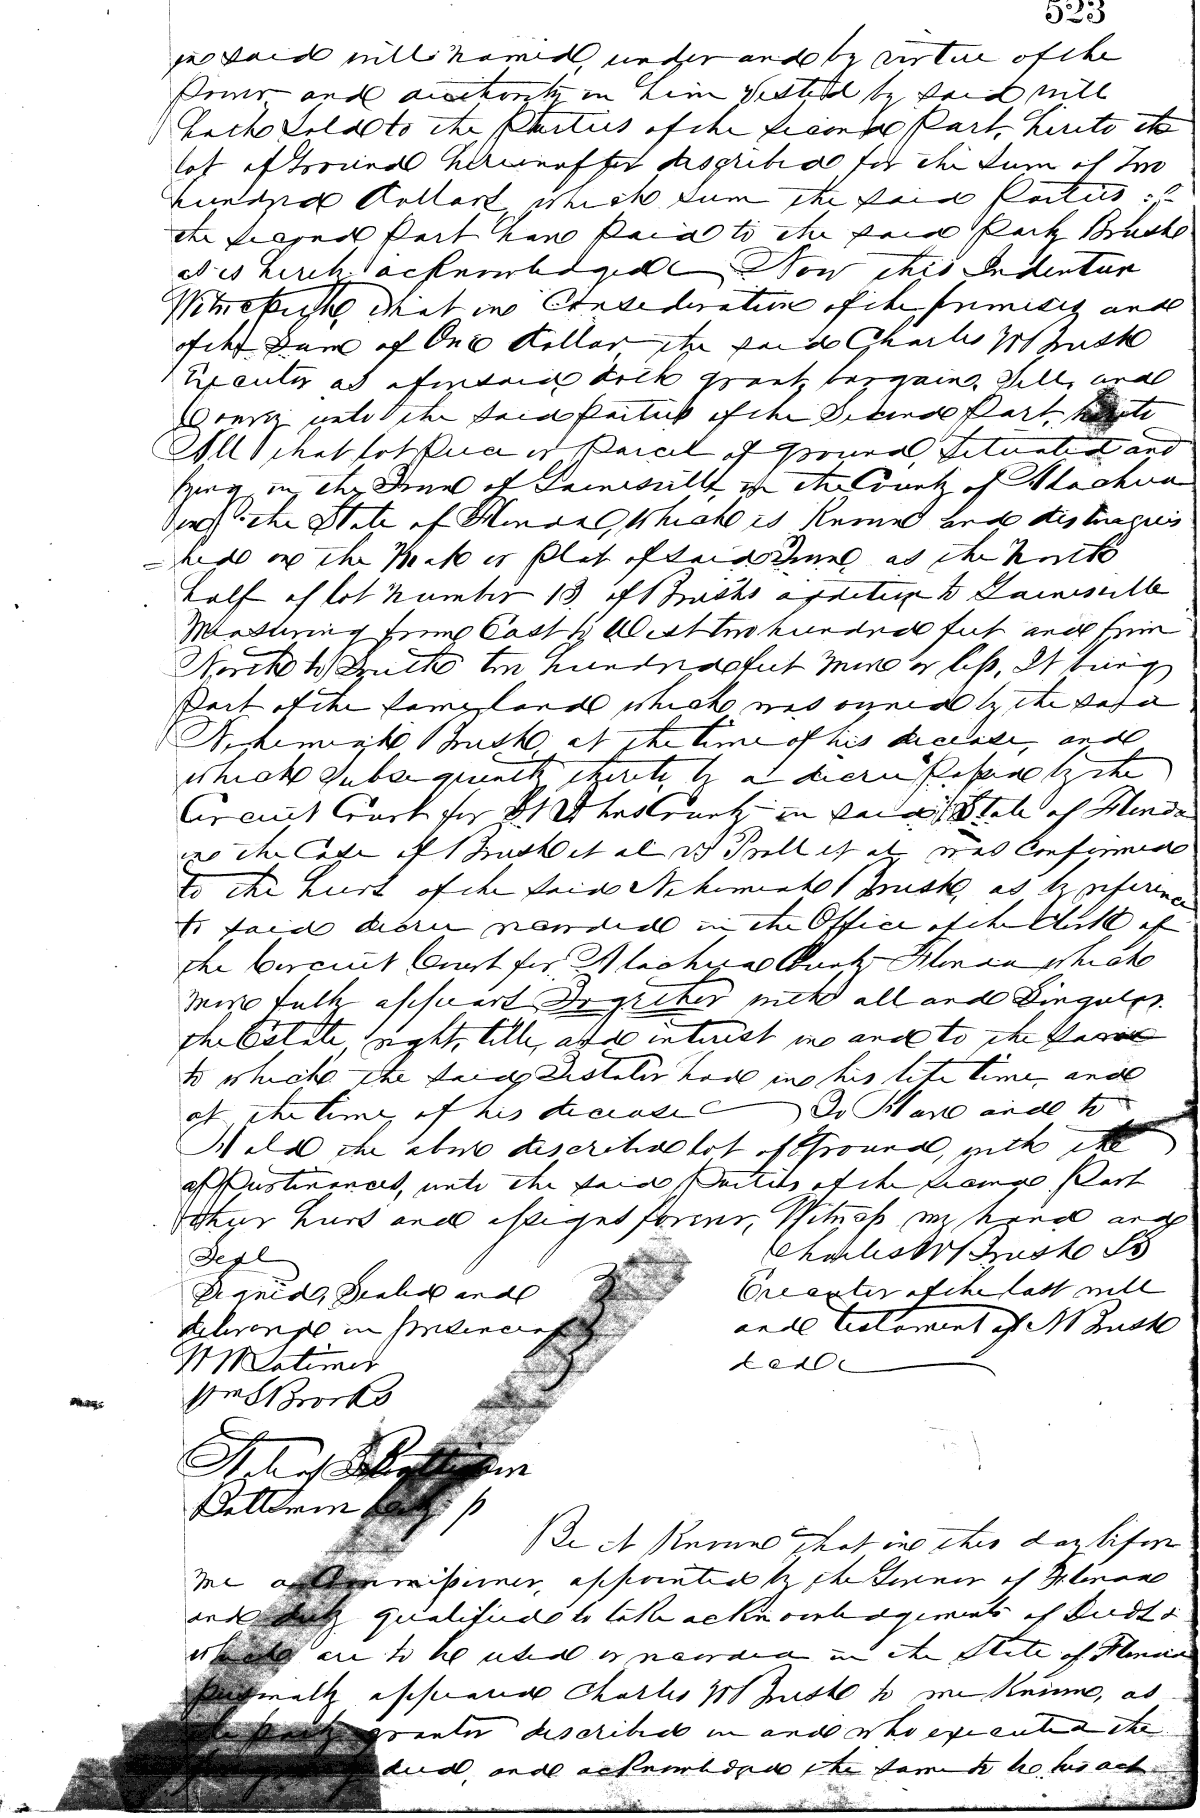 523
in said will named, under and by virtue of the
Power and authority in him vested by said will
hath sold to the Parties of the second Part, hereto the
lot of Ground hereinafter described for the sum of Two
hundred dollars, which sum the said Parties of
the second Part have Paid to the said Party Brush
as is hereby acknowledged Now this Indenture
Witnesseth, that in Consideration of the premises and
of the Sum of One dollar, the said Charles W Brush
Executor as aforesaid, doth grant, bargain, Sell, and
Convey unto the said parties of the Second Part, hereto
All that lot Piece or Parcel of ground, Situated and
lying in the Town of Gainesville, in the County of Alachua
in the State of Florida, which is Known and distinguis
=hed on the Map or Plat of said Town, as the North
half of lot number 13, of Brushs addition to Gainesville
Measuring from East to West two hundred feet and from
North to South two hundred feet more or less, It being
Part of the same land which was owned by the said
Nehemiah Brush, at the time of his decease, and
which subsequently thereto, by a decree Passed by the
Circuit Court for St Johns County in said State of Florida
in the Case of Brush et al vs Prall et al was Confirmed
to the heirs of the said Nehemiah Brush, as by reference
to said decree recorded in the Office of the Clerk of
the Circuit Court for Alachua County Florida which
more fully appears Together with all and Singular
the Estate, right, title, and interest in and to the same
to which the said Testator had in his life time, and
at the time of his decease To Have and to
Hold the above described lot of Ground, with the
appurtinances, unto the said Parties of the second Part
their heirs and assigns forever, Witness my hand and
Seal Charles W Brush LS
Signed, Sealed and Executor of the last will
delivered in presence of and testament of N Brush
W W Latimer decd
Wm S Brooks
State of
Baltimore City ss
Be it Known that on this day before
me a Commissioner, appointed by the Governor of Florida
and duly qualified to take acknowledgements of Deeds &
which are to be used or recorded in the State of Florida
personally appeared Charles W Brush to me Known, as
the party grantor described in and who executed the
deed, and acknowledged the same to be his act